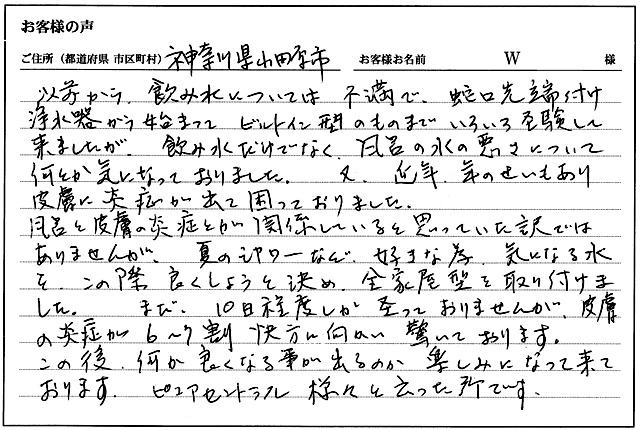 お客様の声
ご住所（都道府県 市区町村） 神奈川県小田原市 お客様お名前 W 様
以前から、飲み水については 不満で、蛇口先端付け
浄水器から始まって ビルトイン型のものまで いろいろ経験して
来ましたが、飲み水だけでなく、風呂の水の悪さについて
何とか気になっておりました。 又、近年、年のせいもあり
皮膚に炎症が出て困っておりました。
風呂と皮膚の炎症とが関係していると思っていた訳では
ありませんが、夏のシャワーなど、好きな為、気になる水
を、この際良くしようと決め、全家屋型を取り付けま
した。 まだ、10日程度しか至っておりませんが、皮膚
の炎症が6～7割 快方に向かい 驚いております。
この後、何が良くなる事が出るのか 楽しみになって来て
おります。 ピュアセントラル 様々と云った所です。